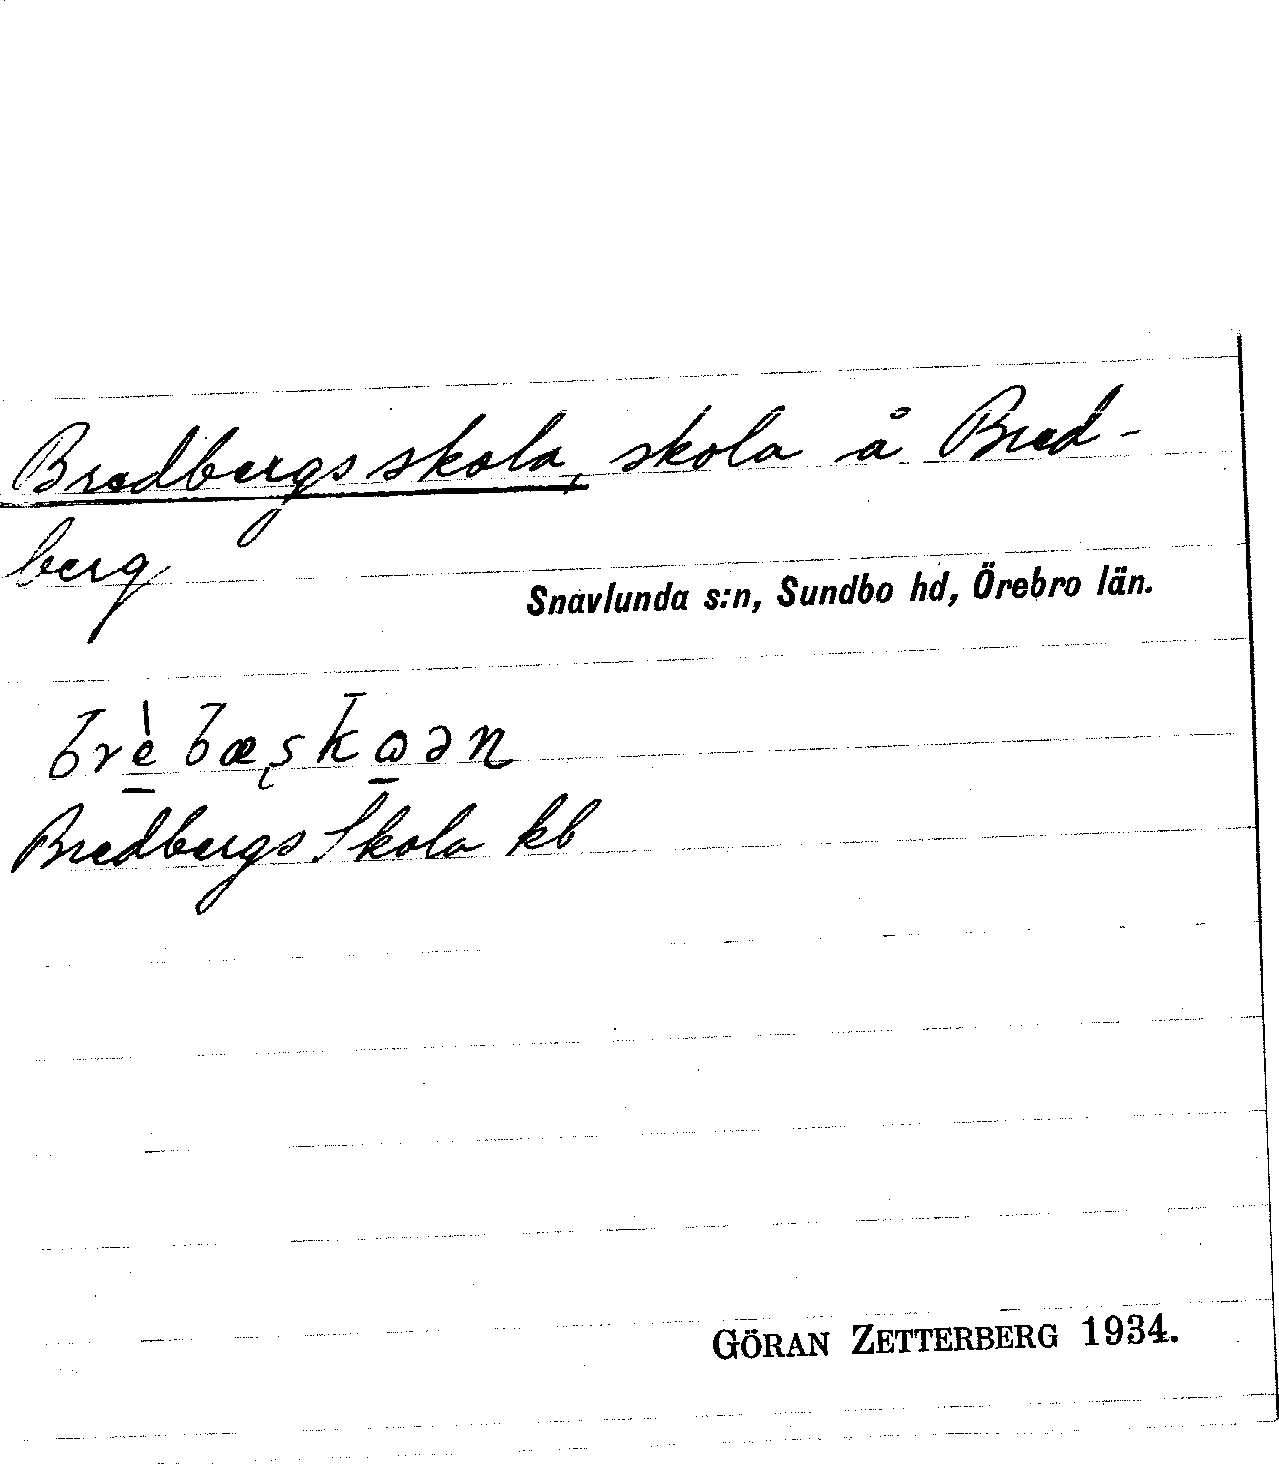 Bredbergsskola, skola å Bred-
berg
Snavlunda s:n, Sundbo hd, Örebro län.
Bredbergs Skola kb
GÖRAN ZETTERBERG 1934.